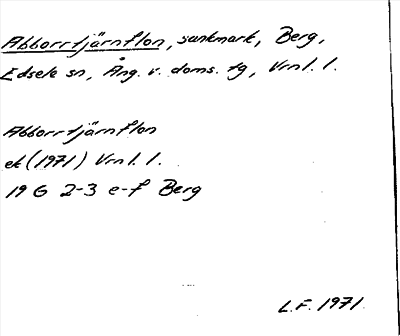 Abborrtjärnflon, sankmark, Berg,
Edsele sn, Ång. v. doms. tg, Vrnl. l.
Abborrtjärnflon
ek (1971) Vrnl. l.
19 G 2-3 e-f Berg
L.F. 1971.